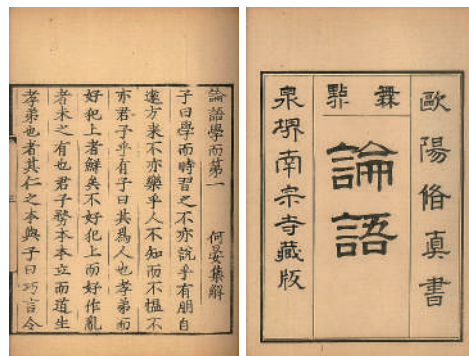 歐陽脩真書
無點
論語
泉堺南宗寺藏版
論語學而第一 何晏集解
子曰學而時習之不亦說乎有朋自
遠方來不亦樂乎人不知而不慍不
亦君子乎有子曰其爲人也孝弟而
好犯上者鮮矣不好犯上而好作亂
者未之有也君子務本本立而道生
孝弟也者其仁之本與子曰巧言令